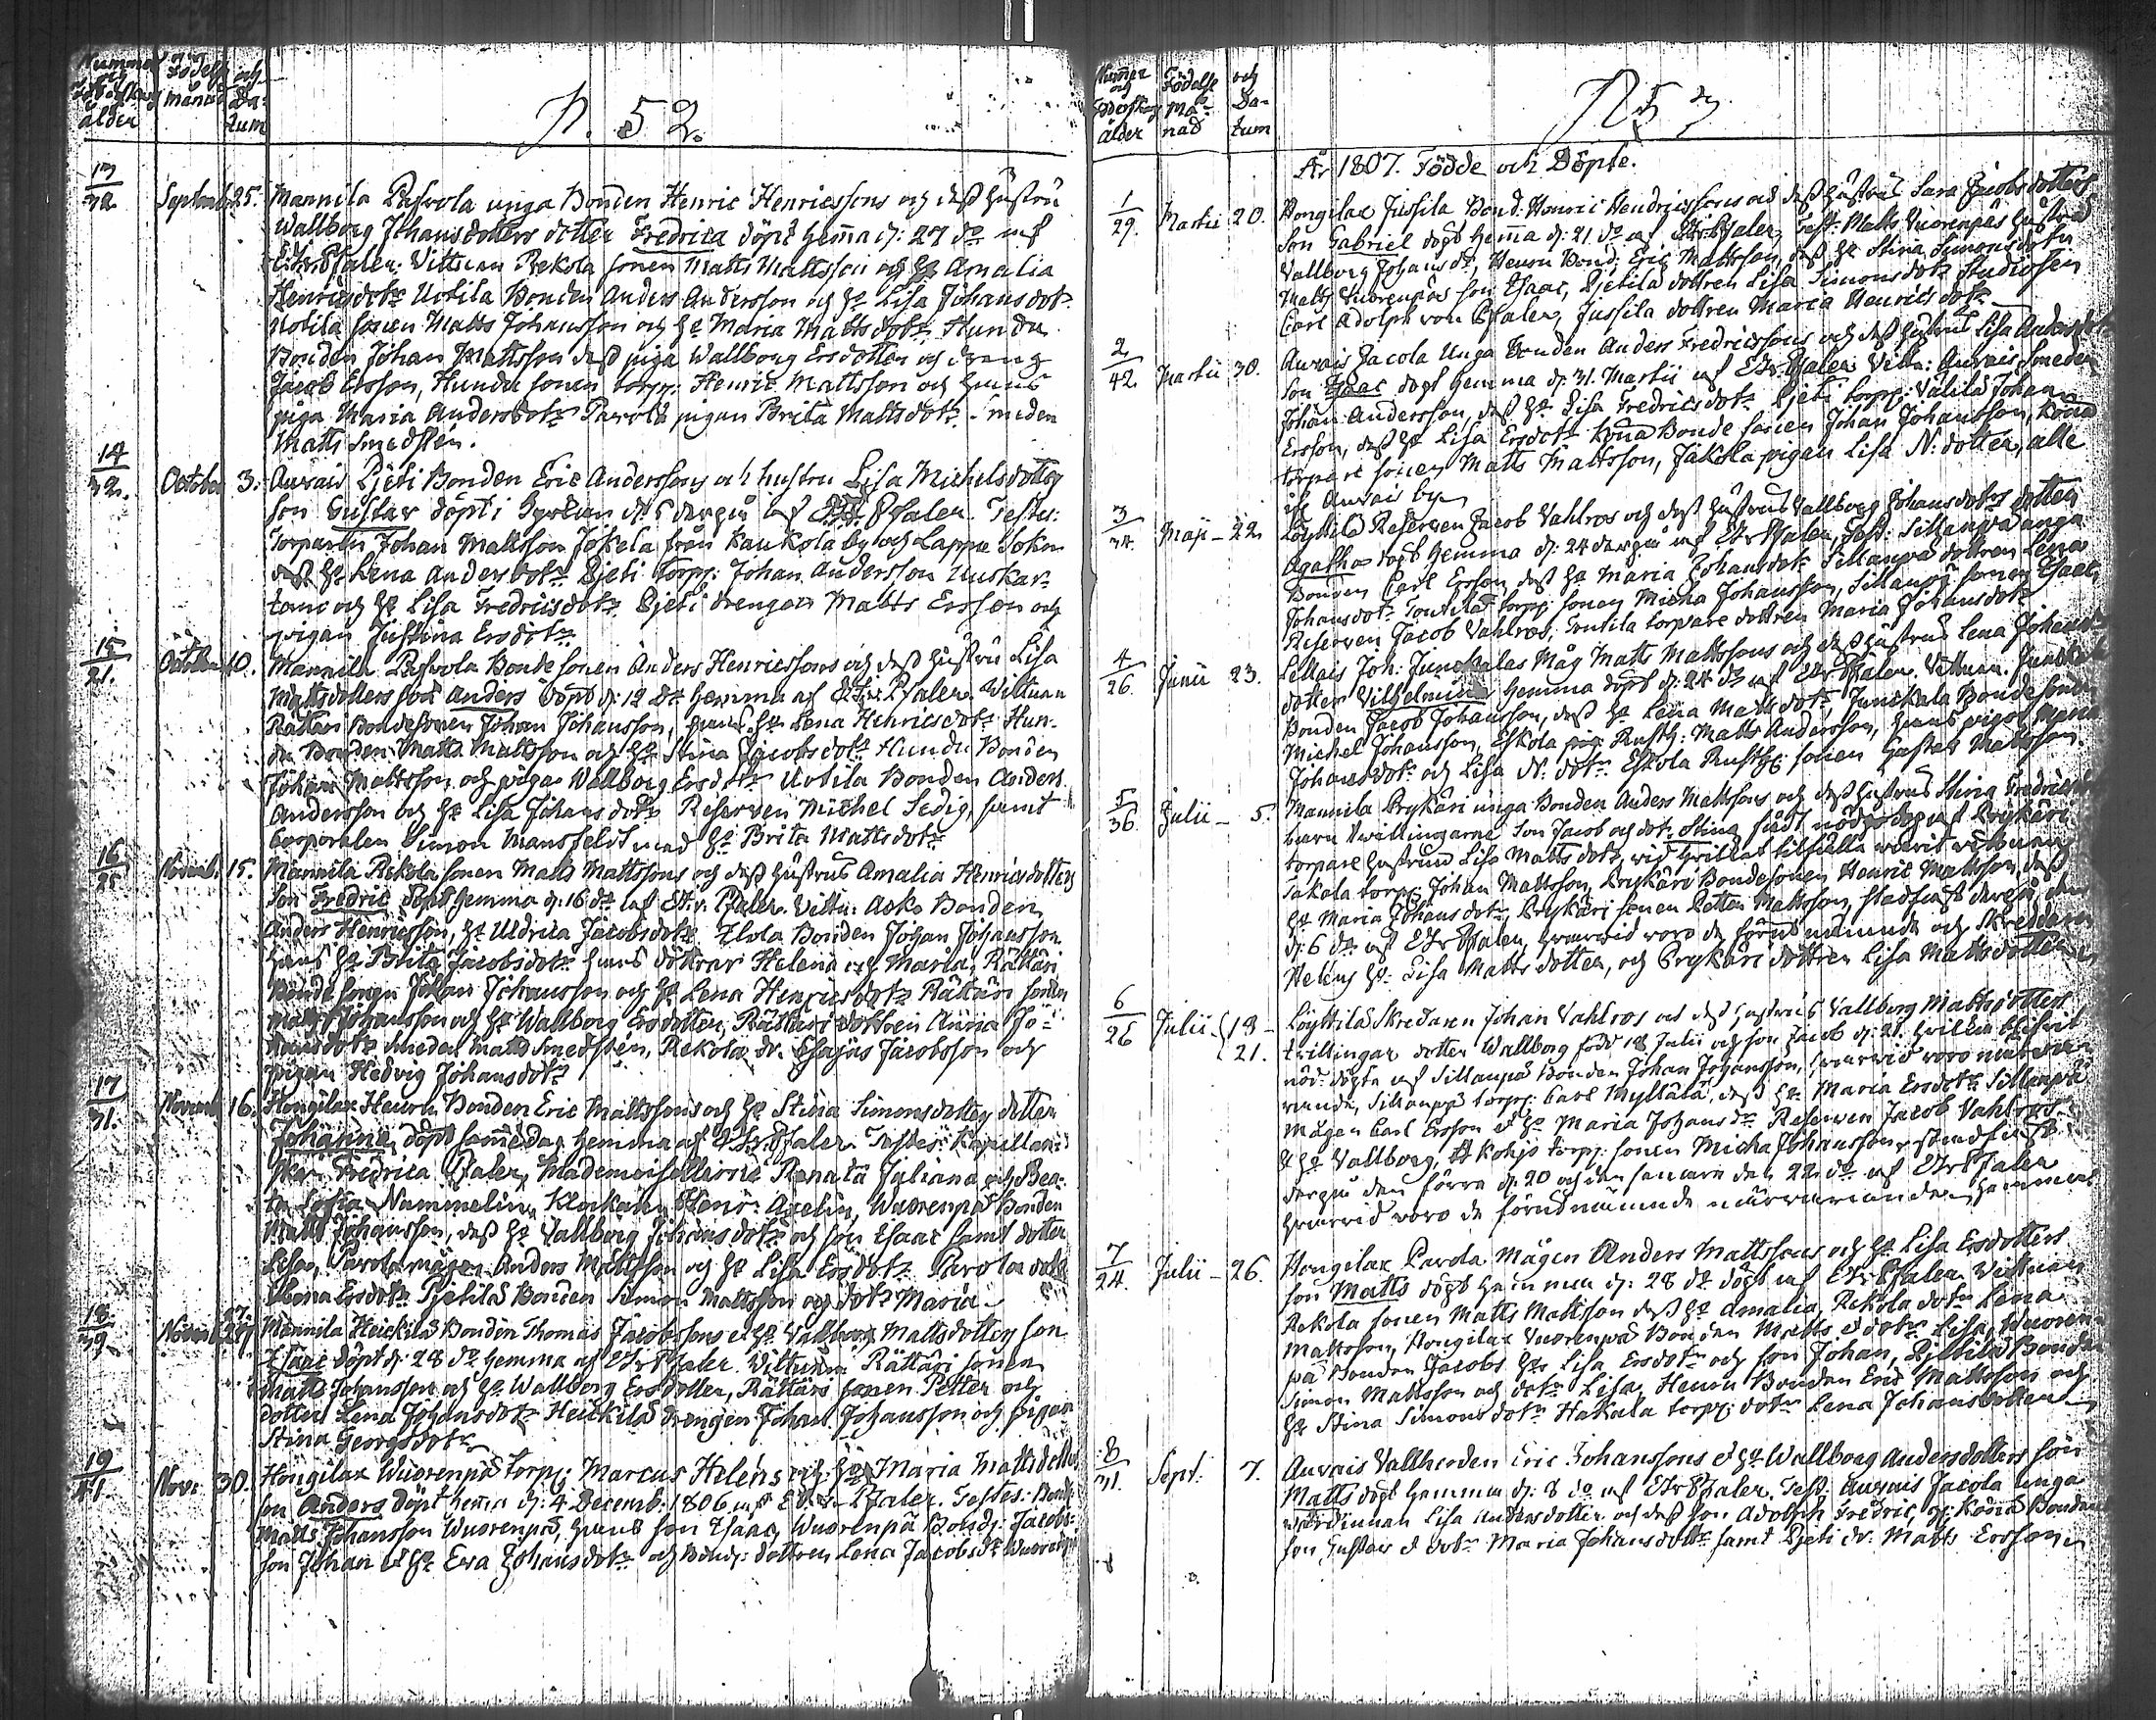 Nummer Födelse och
och månad Da-
ålder tum
P. 52.
13
32. Septemb. 25. Mannila Pasvola unga Bonden Henric Henricssons och dess hustru
Wallborg Johansdotters dotter Fredrica döpt hemma d: 27 do af
E:Hr Pfaler. Vittnen Rekola sonen Matts Mattsson och H: Amalia
Henricsdotr Uotila Bonden Anders Andersson och H: Lisa Johansdotr
Uotila sonen Matts Johansson och H: Maria Mattsdotr. Hundu
Bonden Johan Mattsson dess piga Wallborg Ersdotter och dreng
Jacob Ersson, Hundu sonen torp: Henric Mattsson och hans
piga Maria Andersdotr Parola pigan Brita Mattsdotr. Smeden
Matts Smedsten.
14
32. October 3. Auvais Pjeti Bonden Eric Anderssons och hustru Lisa Michelsdotters
son Gustav döpt i Kyrkan d: 5 derpå af E:Hr Pfaler. Testes:
Torparen Johan Mattsson Jokela från Kaukola by och Lappi Sokn
dess H: Lena Andersdotr. Pjeti torp: Johan Andersson Uuskar-
tano och H: Lisa Fredricsdotr. Pjeti drengen Matts Ersson och
pigan Justina Ersdotr.
15
21. October 10. Mannila Pasvola Bonde sonen Anders Henricssons och dess hustru Lisa
Mattsdotters son Anders döpt d: 12 do hemma af E:Hr Pfaler. Vittnen
Rättäri Bondesonen Johan Johansson, hans H: Lena Henricsdotr Hun-
du Bonden Matts Mattsson och H: Stina Jacobsdotr Hundu Bonden
Johan Mattsson och pigan Wallborg Ersdotr Uotila Bonden Anders
Andersson och H: Lisa Johansdotr. Reserven Michel Sedig, samt
Corporalen Simon Mansfeldt med H: Brita Mattsdotr
16
25 Novemb. 15. Mannila Rekola sonen Matts Mattssons och dess hustrus Amalia Henricsdotters
son Fredric döpt hemma d: 16 do af E:Hr Pfaler. Vittn: Asko Bonden
Anders Henricsson, H: Uldrica Jacobsdotr Elola Bonden Johan Johansson
hans H: Brita Jacobsdotr hans döttrar Helena och Maria, Rättäri
Bonde sonen Johan Johansson och H: Lena Henricsdotr Rättäri sonen
Matts Johansson och H: Wallborg Ersdotter, Rättäri dottren Anna Jo-
hansdotr Smeden Matts Smedsten, Rekola dr. Esajas Jacobsson och
pigan Hedvig Johansdotr
17
31. Novemb 16. Hongilax Heuru Bonden Eric Mattssons och H: Stina Simonsdotters dotter
Johanna, döpt samma dag hemma af E:Hr Pfaler. Testes: Kapellan-
skan Fredrica Pfaler, Mademoisellerne Renata Juliana och Bea-
ta Sofia Nummelin, Klockaren Henr: Axelin, Wuorenpä Bonden
Matts Johansson, dess H: Vallborg Johansdotr och son Isaac samt dotter
Lisa, Parola mågen Anders Mattsson och H: Lisa Ersdotr. Parola dottr
Lena Ersdotr Pjetilä Bonden Simon Mattsson och dotr Maria.
18
39. Novemb. 27. Mannila Heickilä Bonden Thomas Jacobssons et H: Vallborg Mattsdotters son
Isaac döpt d: 28 do hemma af E:Hr Pfaler. Vittnen Rättäri sonen
Matts Johansson och H: Wallborg Ersdotter, Rättäri sonen Petter och
dotter Lena Johansdotr Heickilä drengen Johan Johansson och pigan
Stina Georgsdotr
19
41. Nov: 30. Hongilax Wuorenpä torp: Marcus Heléns och H: Maria Mattsdotters
son Anders döpt hemma d: 4 Decemb: 1806 af E:Hr Pfaler. Testes: Bond:
Matts Johansson Wuorenpä, hans son Isaac, Wuorenpä Bond: Jacobs
son Johan et H: Eva Johansdotr och Bond: dottren Lena Jacobsdr Wuorenpä
Nummer Födelse och
och Må- Da-
ålder nad tum
P. 53
År 1807. Födde och Döpte.
1
29. Martii 20. Hongilax Jussila Bond: Henric Hendricssons och dess hustrus Sara Jacobsdotters
son Gabriel döpt hemma d: 21 do af E:Hr Pfaler, Test: Matts Vuorenpäs hustru
Vallborg Johansdr, Heuru Bond: Eric Mattsson, dess H: Stina Simonsdotr
Matts Vuorenpäs son Isaac, Pjetila dottren Lisa Simonsdotr Studiosen
Carl Adolph von Pfaler, Jussila dottren Maria Henricsdotr
2
42. Martii 30. Auvais Jacola Unga Bonden Anders Fredricssons och dess hustrus Lisa Andersdotters
son Isaac döpt hemma d: 31. Martii af E:Hr Pfaler Vittn: Auvais Smeden
Johan Andersson, dess H: Lisa Fredricsdotr Pjeti torp: Välilä Johan
Ersson, dess H: Lisa Ersdotr Köna Bonde sonen Johan Johansson, Köna
torpare sonen Matts Mattsson, Jakola pigan Lisa N: dotter, alle
ifr Auvais by
3
34. Maji 22 Löyttilä Reserven Jacob Vahlros och dess hustrus Vallborg Johansdotrs dotter
Agatha döpt hemma d: 24 derpå af E:Hr Pfaler, Test: Sillanpä unga
Bonden Carl Ersson, dess H: Maria Johansdotr Sillanpä dottren Lena
Johansdotr Tontila torp: sonen Micha Johansson, Sillanpä sonen Isaac,
Reserven Jacob Vahlros, Tontila torpare dottren Maria Johansdotr
4
26. Junii 23. Lellais Joh: Junckalas Måg Matts Mattssons och dess hustrus Lena Johans-
dotter Vilhelmina hemma döpt d: 24 do af E:Hr Pfaler. Vittnen. Junckala
Bonden Jacob Johansson, dess H: Lena Mattsdotr Junckala Bondeson
Michel Johansson, Eskola Rusth: Matts Andersson, hans pigor Maria
Johansdotr och Lisa N: dotr. Eskola Rusth: sonen Gustav Mattsson.
5
36. Julii 5. Mannila Prykäri unga Bonden Anders Mattssons och dess hustrus Stina Fredricsdr
barn twillingarne Son Jacob och dotr. Stina födt nöddöpt af Prykäri
torpare hustrun Lisa Mattsdotr, wid hvilket tilfälle warit wittnen
Takala torp: Johan Mattsson, Prykäri Bondesonen Henric Mattsson, dess
H: Maria Johansdotr, Prykäri sonen Petter Mattsson, stadfäst derpå den
d: 6 do af E:Hr Pfaler, hvarvid voro de förut nämnde och Skreddaren
Heléns H: Lisa Mattsdotter, och Prykäri dottren Lisa Mattsdotter
6
26 Julii 18 - Löyttilä Skredaren Johan Vahlros och dess hustrus Vallborg Mattsdotters
21. tvillingar dotter Wallborg född 18 Julii och son Jacob d: 21. hvilka blifvit
nöd-döpte af Sillanpä Bonden Johan Johansson, hvarvid voro närva-
rande, Sillanpä torp: Carl Myllälä, dess H: Maria Ersdotr. Sillanpä
Mågen Carl Ersson et H: Maria Johansdr Reserven Jacob Vahlros
& H: Vallborg, Kohijo torp: sonen Micha Johansson, stadfäst
derpå den förra d: 20 och den senare den 22. do af E:Hr Pfaler
hvarvid voro de förutnämnde närvarande hemma
7
24. Julii 26. Hongilax Parola Mågen Anders Mattssons och H: Lisa Ersdotters
son Matts döpt hemma d: 28 do döpt af E:Hr Pfaler Vittnen
Rekola sonen Matts Mattsson dess H: Amalia, Rekola dotr Lena
Mattsson, Hongilax Vuorenpä Bonden Matts et dotr Lisa, Wuoren-
pä Bonden Jacobs H: Lisa Ersdotr och son Johan, Pjetilä Bonden
Simon Mattsson och dotr Lisa, Heuru Bonden Eric Mattsson och
H: Stina Simonsdotr Hakala torp: dotr Lena Johansdotter
8
31. Sept: 7. Auvais Vallherden Eric Johanssons et H: Wallborg Andersdotters son
Matts döpt hemma d: 8 do af E:Hr Pfaler. Test: Auvais Jacola unga
värdinnan Lisa Andersdotter och dess son Adolph Fredric, Köna Bondens
son Gustav et dotr Maria Johansdotr samt Pjeti dr. Matts Ersson